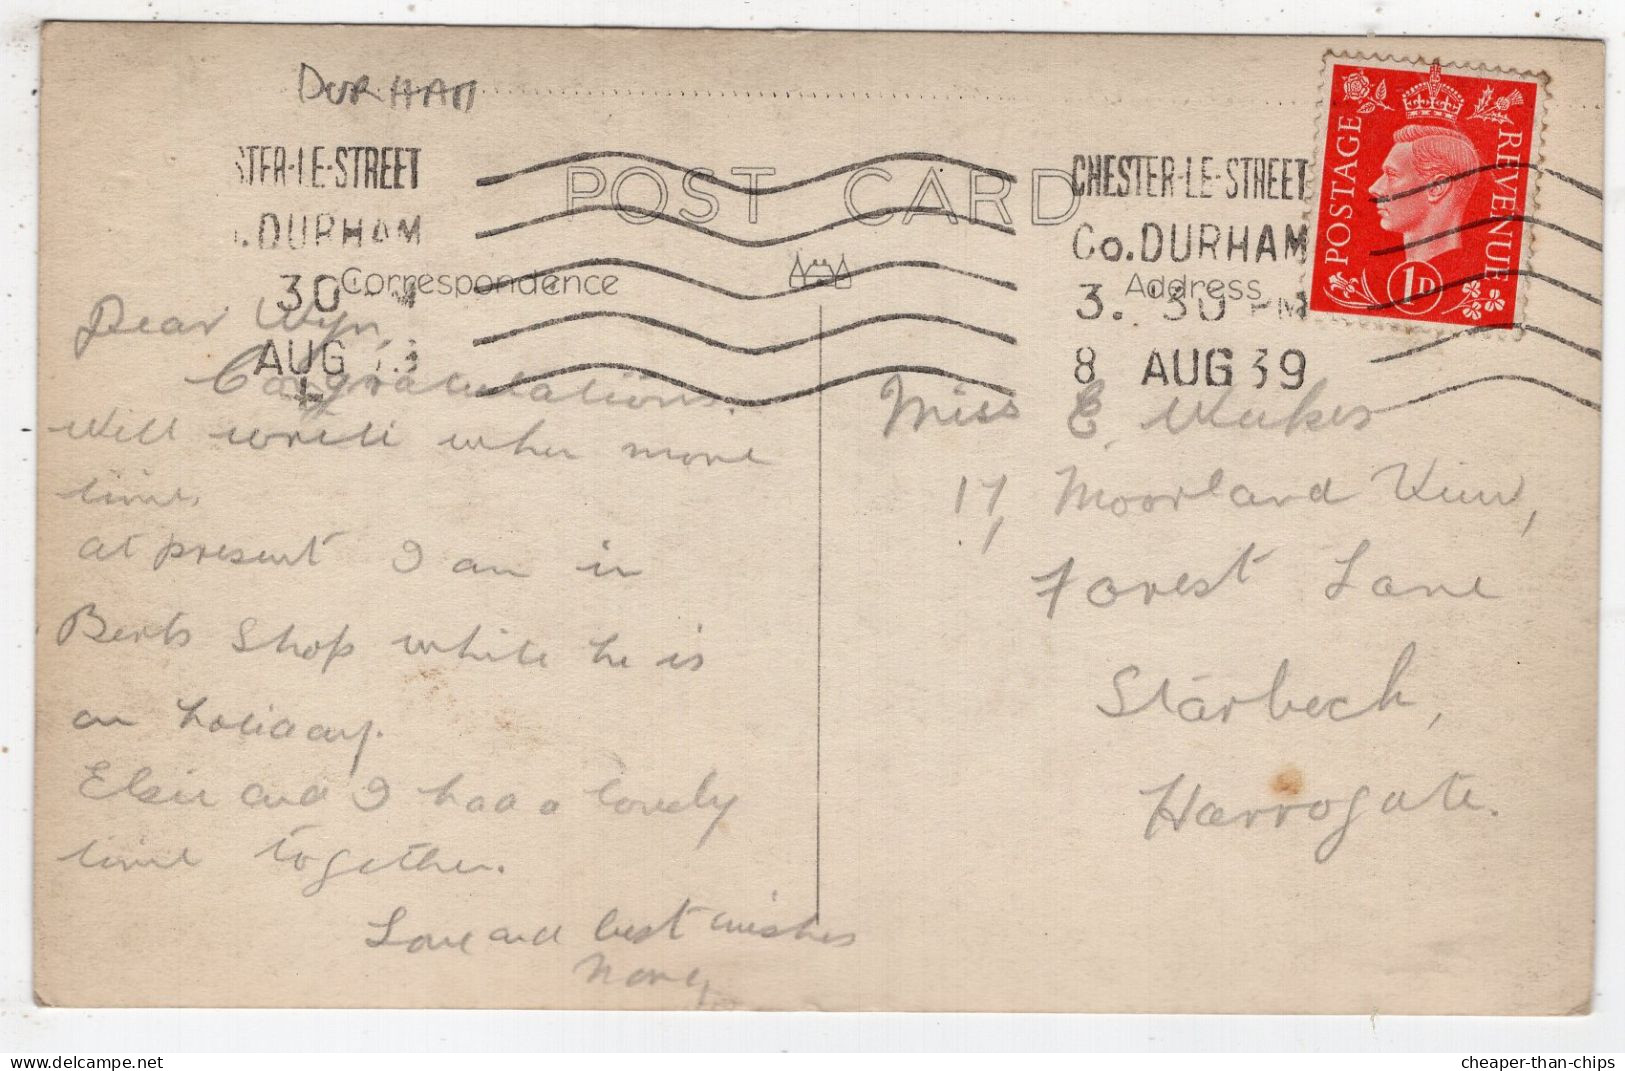 DURHAM
STER-LE-STREET
.DURHAM
30
AUG
POST CARD
CHESTER-LE-STREET
Co. DURHAM
3. 30 PM
8 AUG 39
POSTAGE REVENUE
1D
Correspondence
Address
Dear Wyn,
Congratulations.
Will write when more
time.
at present I am in
Berts Shop while he is
on holiday.
Elsie and I had a lovely
time together.
Love and best wishes
Miss E.
17, Moorland View,
Forest Lane
Starbeck,
Harrogate.
cheaper-than-chips